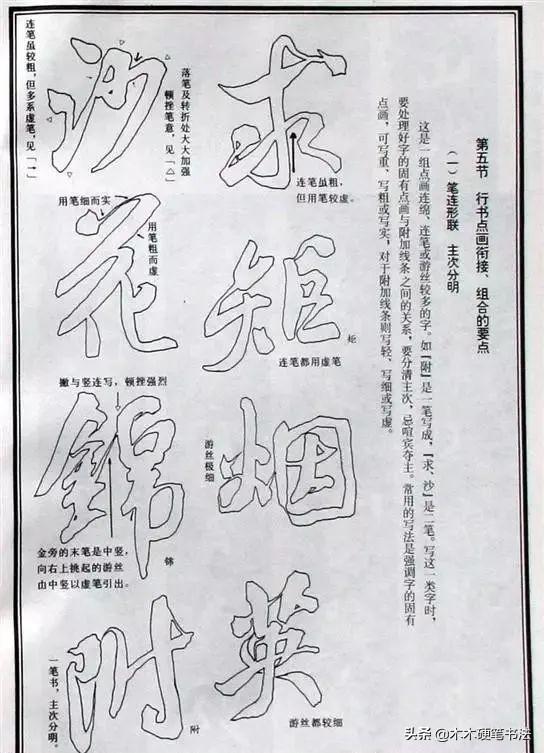 第五节 行书点画衔接、组合的要点
（一）笔连形联 主次分明
这是一组点画连绵、连笔或游丝较多的字。如『附』是一笔写成，『求、沙』是二笔。写这一类字时，
要处理好字的固有点画与附加线条之间的关系，要分清主次，忌喧宾夺主。常用的写法是强调字的固有
点画，可写重、写粗或写实，对于附加线条则写轻、写细或写虚。
求
连笔虽粗，
但用笔较虚。
矩
矩
连笔都用虚笔
烟
游丝极细
英
游丝都较细
沙
落笔及转折处大大加强
顿挫笔意，见「△」
连笔虽较粗，但多系虚笔，见「→」
花
用笔细而实
用笔粗而虚
锦
錦
撇与竖连写，顿挫强烈
金旁的末笔是中竖，
向右上挑起的游丝
由中竖以虚笔引出。
附
附
一笔书，主次分明。
头条 @木木硬笔书法